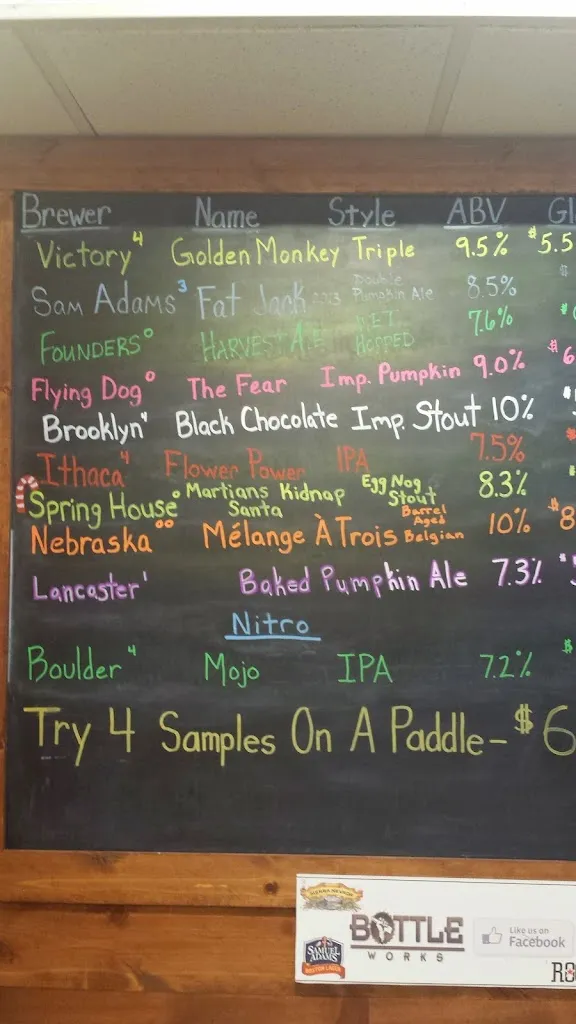 Brewer Name Style ABV Gl
Victory4 Golden Monkey Triple 9.5% $5.5
Sam Adams3 Fat Jack 2013 Double Pumpkin Ale 8.5% $
Founders° Harvest Ale Wet Hopped 7.6% $
Flying Dog° The Fear Imp. Pumpkin 9.0% $6
Brooklyn4 Black Chocolate Imp. Stout 10% $
Ithaca4 Flower Power IPA 7.5% $
Spring House° Martians Kidnap Santa Egg Nog Stout 8.3%
Nebraska°° Mélange À Trois Barrel Aged Belgian 10% $8
Lancaster1 Baked Pumpkin Ale 7.3% $5
Nitro
Boulder4 Mojo IPA 7.2% $
Try 4 Samples On A Paddle- $6
SIERRA NEVADA
BOTTLE
WORKS
Like us on
Facebook
SAMUEL
ADAMS
BOSTON LAGER
RO